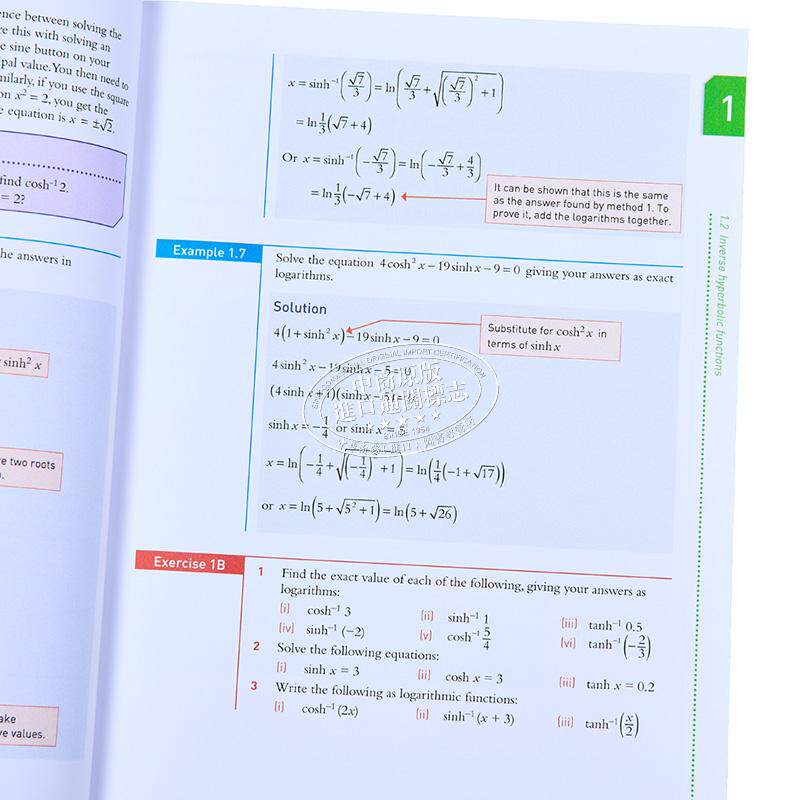 ence between solving the
re this with solving an
e sine button on your
pal value. You then need to
milarly, if you use the square
on x² = 2, you get the
e equation is x = ±√2.
find cosh⁻¹ 2.
= 2?
he answers in
sinh² x
e two roots
ake
ve values.
x = sinh⁻¹(√7/3) = ln(√7/3 + √((√7/3)² + 1))
= ln 1/3(√7 + 4)
Or x = sinh⁻¹(−√7/3) = ln(−√7/3 + 4/3)
= ln 1/3(−√7 + 4)
It can be shown that this is the same
as the answer found by method 1. To
prove it, add the logarithms together.
1
1.2 Inverse hyperbolic functions
Example 1.7
Solve the equation 4cosh² x − 19sinh x − 9 = 0 giving your answers as exact
logarithms.
Solution
4(1 + sinh² x) − 19sinh x − 9 = 0
Substitute for cosh² x in
terms of sinh x
4sinh² x − 19sinh x − 5 = 0
(4sinh x + 1)(sinh x − 5) = 0
sinh x = −1/4 or sinh x = 5
x = ln(−1/4 + √((−1/4)² + 1)) = ln(1/4(−1 + √17))
or x = ln(5 + √(5² + 1)) = ln(5 + √26)
中商原版
進口通關標志
SINCE 1984
Exercise 1B
1 Find the exact value of each of the following, giving your answers as
logarithms:
(i) cosh⁻¹ 3 (ii) sinh⁻¹ 1 (iii) tanh⁻¹ 0.5
(iv) sinh⁻¹ (−2) (v) cosh⁻¹ 5/4 (vi) tanh⁻¹(−2/3)
2 Solve the following equations:
(i) sinh x = 3 (ii) cosh x = 3 (iii) tanh x = 0.2
3 Write the following as logarithmic functions:
(i) cosh⁻¹ (2x) (ii) sinh⁻¹ (x + 3) (iii) tanh⁻¹(x/2)